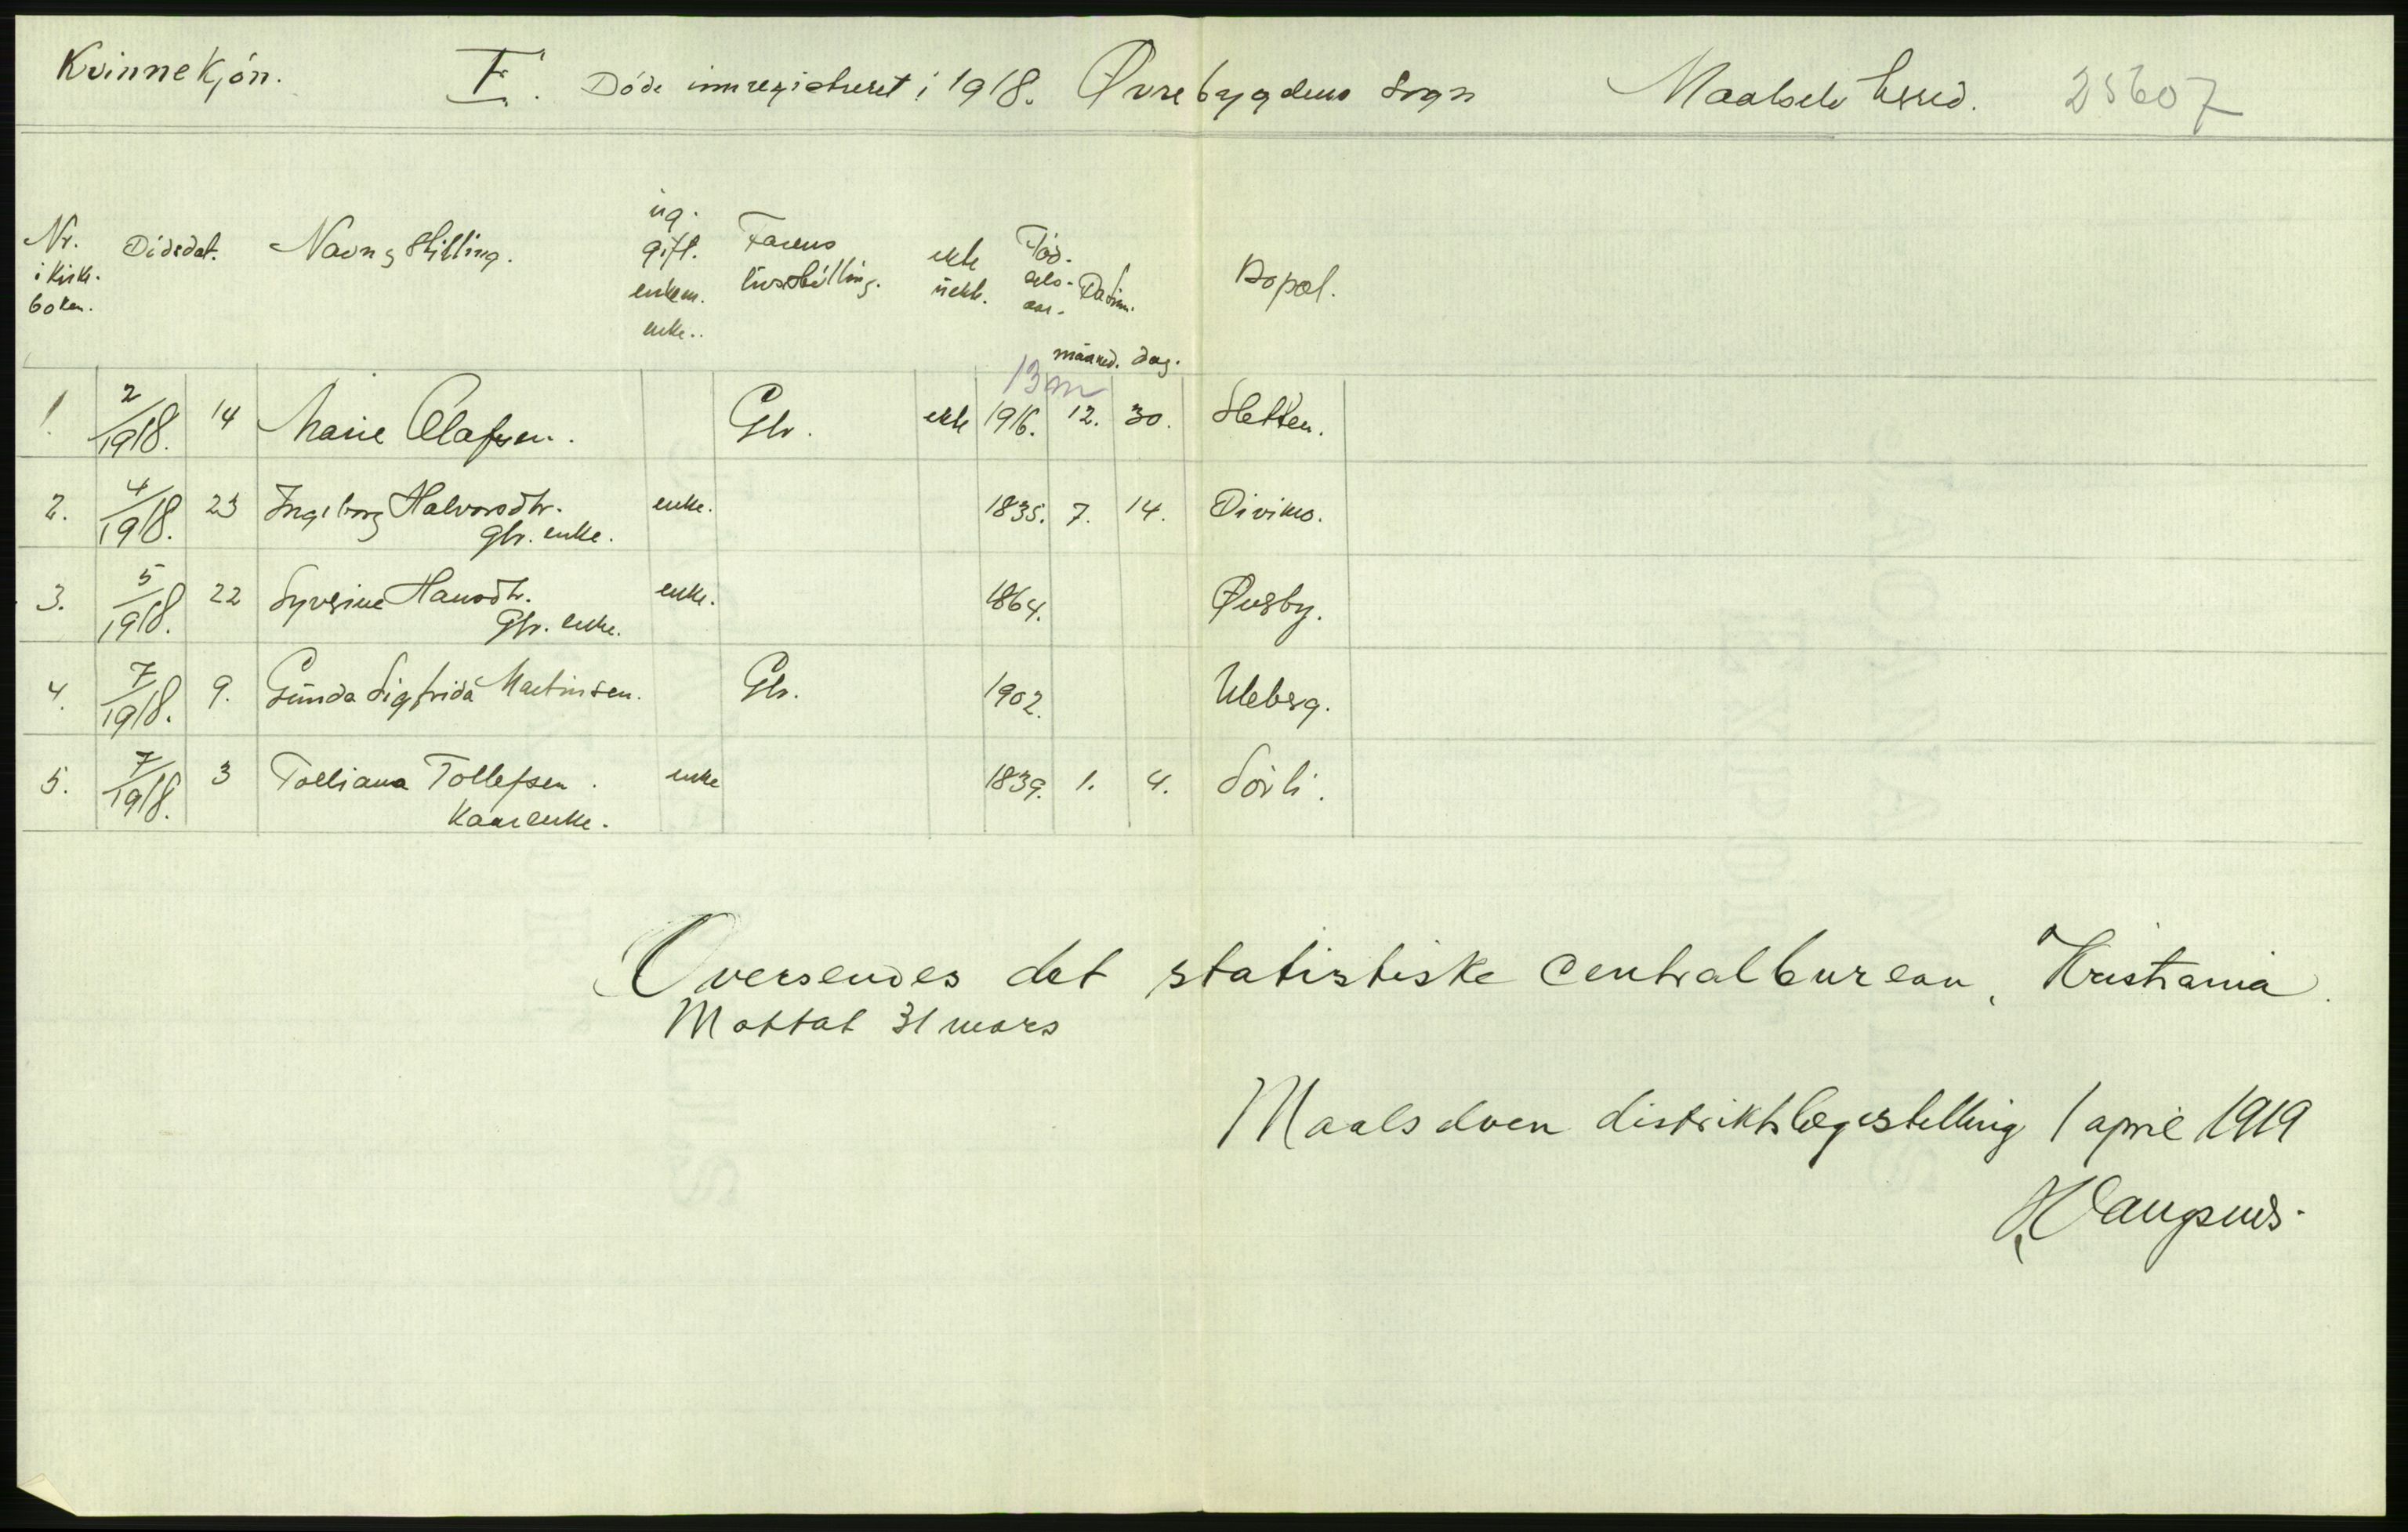 Kvinnekjön. F. Döde innregistreret i 1918. Øvrebygdens Sogn Maalselv herred. 25607
Nr. i kirke-boken. Dödsdat. Navn og Stilling. ug. gift. enkem. enke.. Farens livsstilling. ekte uekte. Föd-sels-aar. Datum. maaned. dag. Bopæl.
13 m
1. 2/1918. 14 Marie Olafsen. Gbr. ekte 1916. 12. 30. Sletten.
2. 4/1918. 23 Ingeborg Halvorsdtr. enke. 1835. 7. 14. Divimo.
Gbr. enke.
3. 5/1918. 22 Syverine Hansdtr. enke. 1864. Øverby.
Gbr. enke.
4. 7/1918. 9. Gunda Sigfrida Martinsen. Gbr. 1902. Uleberg.
5. 7/1918. 3 Tolliana Tollefsen. enke 1839. 1. 4. Sörli.
Kaarenke.
Oversendes det statistiske centralbureau, Kristiania.
Mottat 31 mars
Maalselven distriktslægestilling 1 april 1919